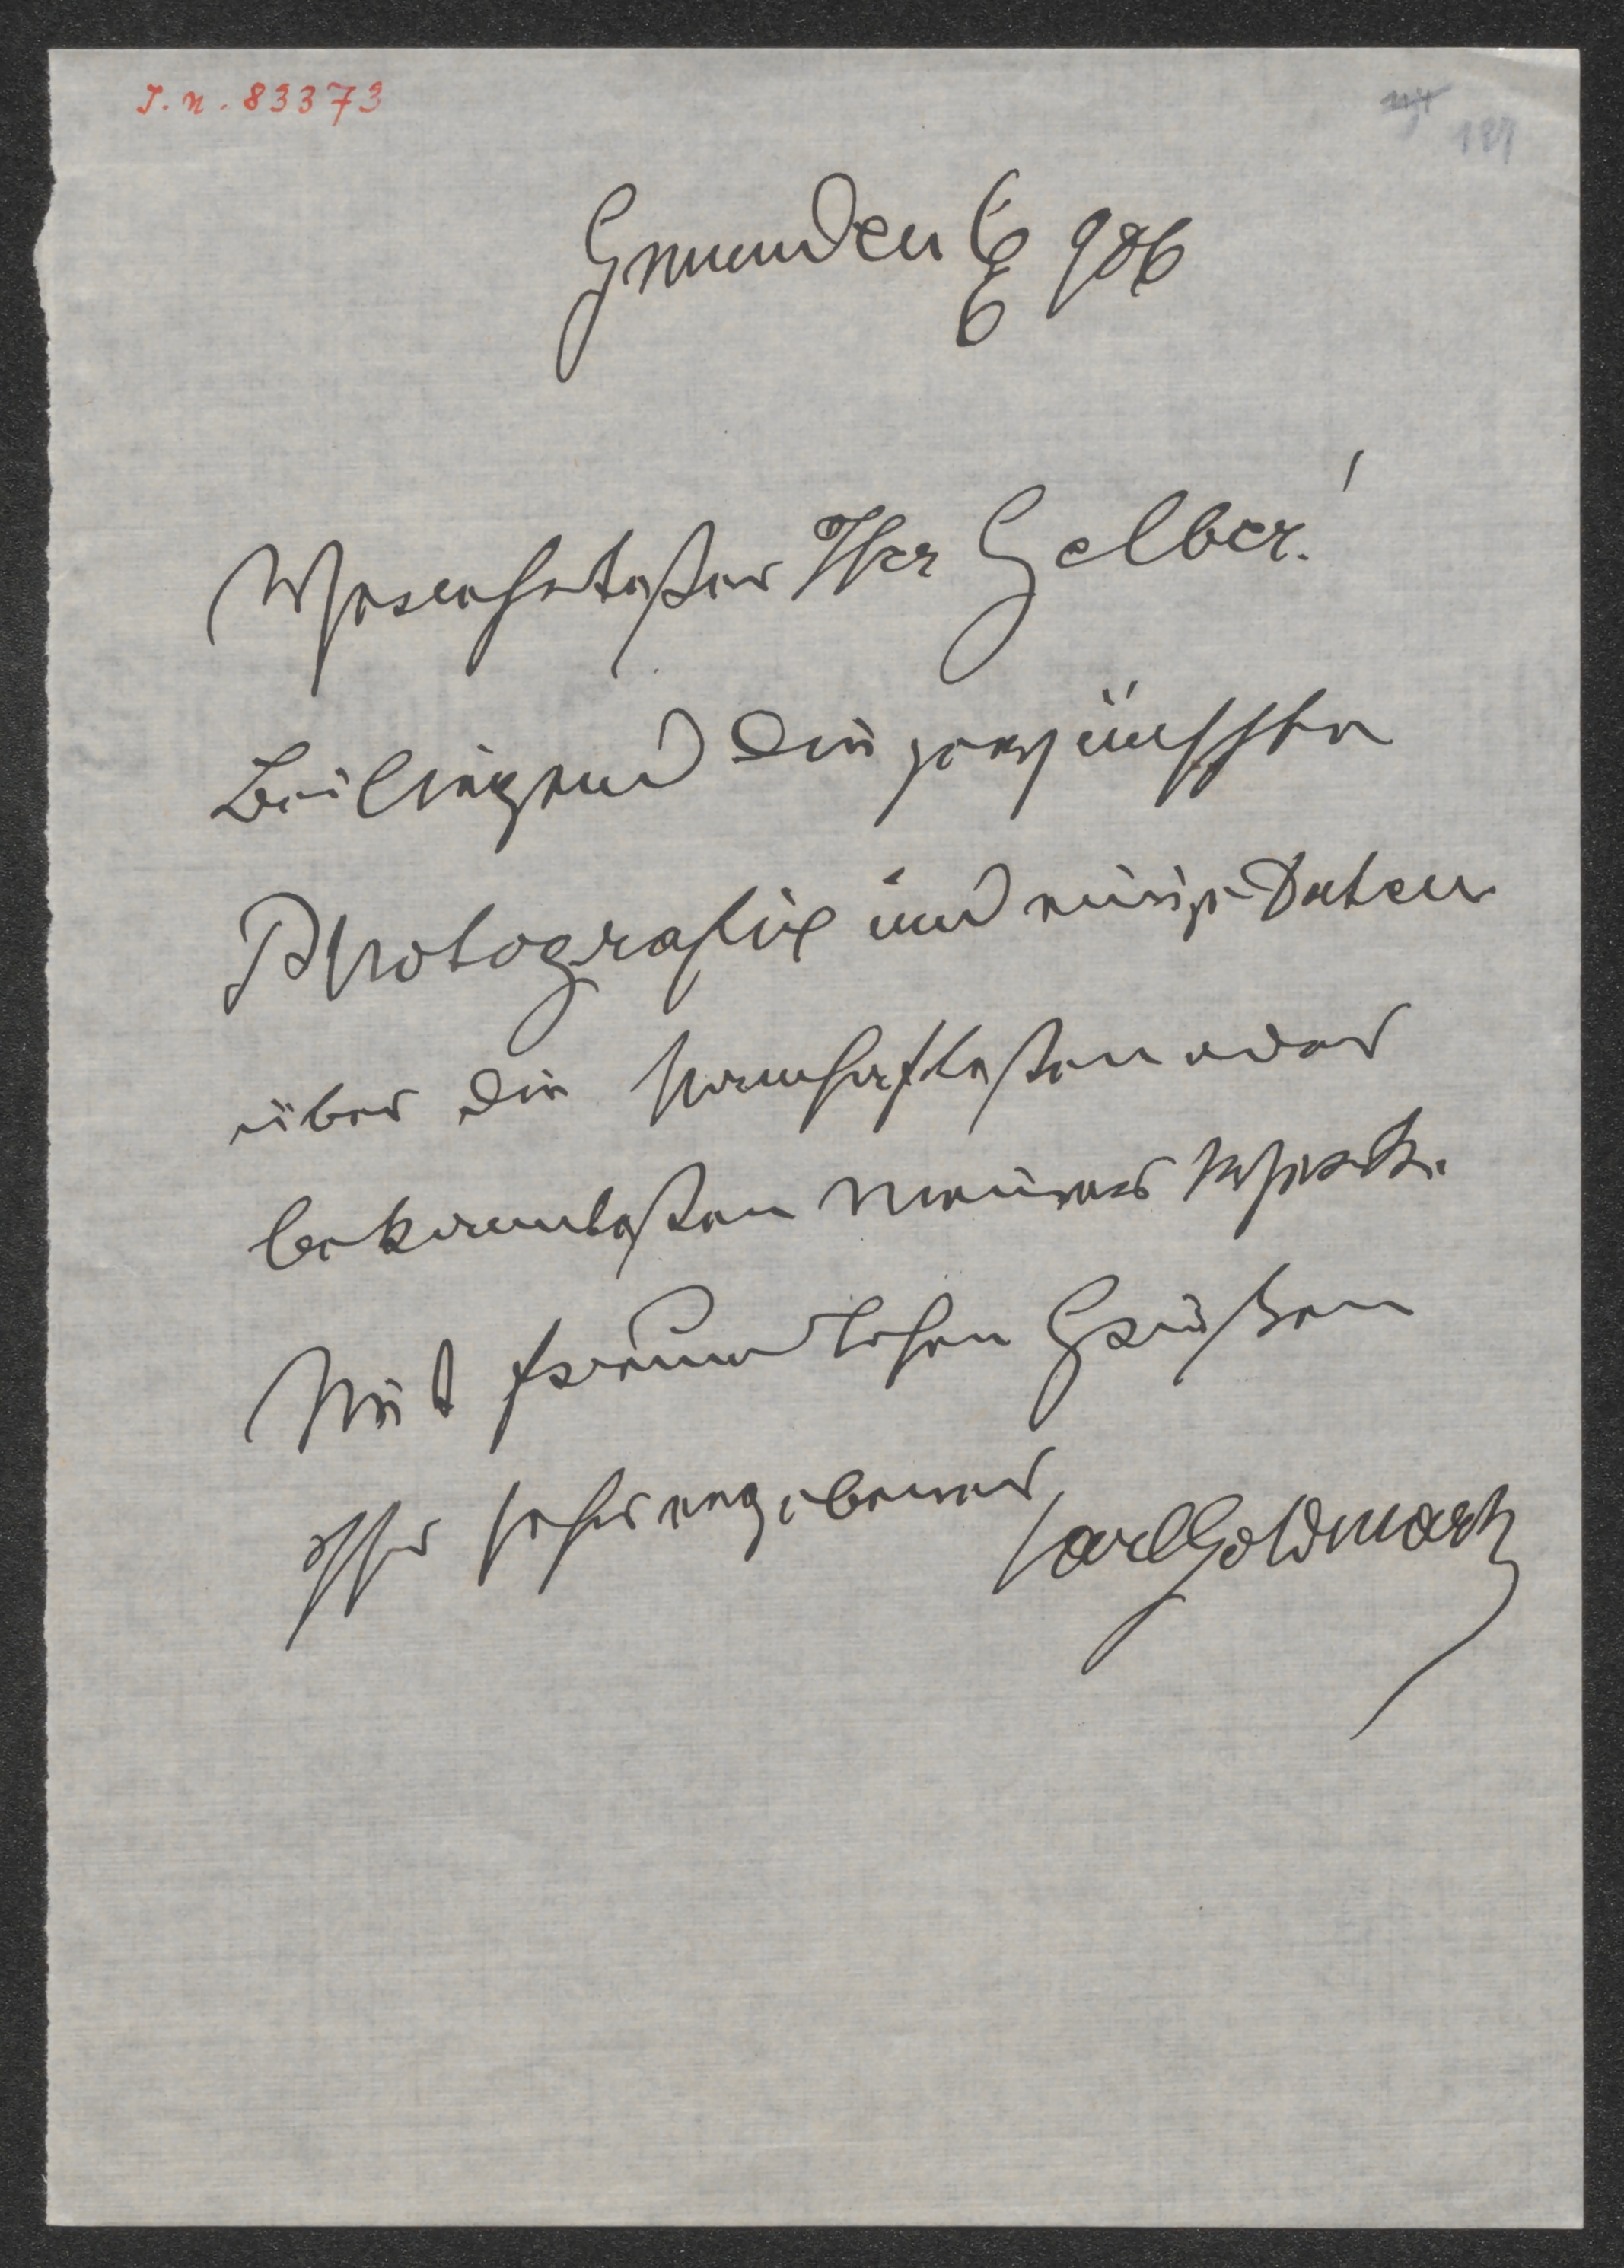 J. N. 83373
181
Gmunden 6/6 906
Verehrtester Herr Gelber!
Beiliegend die gewünschte
Photografie und einige Daten
über die namhaftesten oder
bekanntesten meiner Werke.
Mit freundlichen Grüßen
Ihr sehr ergebener
Carl Goldmark